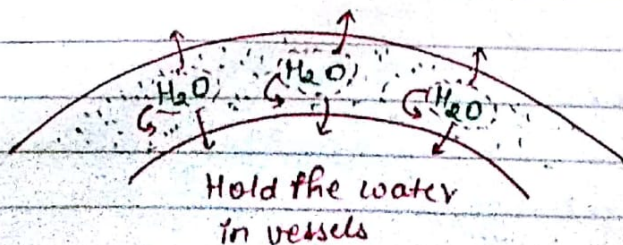 H₂O H₂O H₂O
Hold the water
in vessels